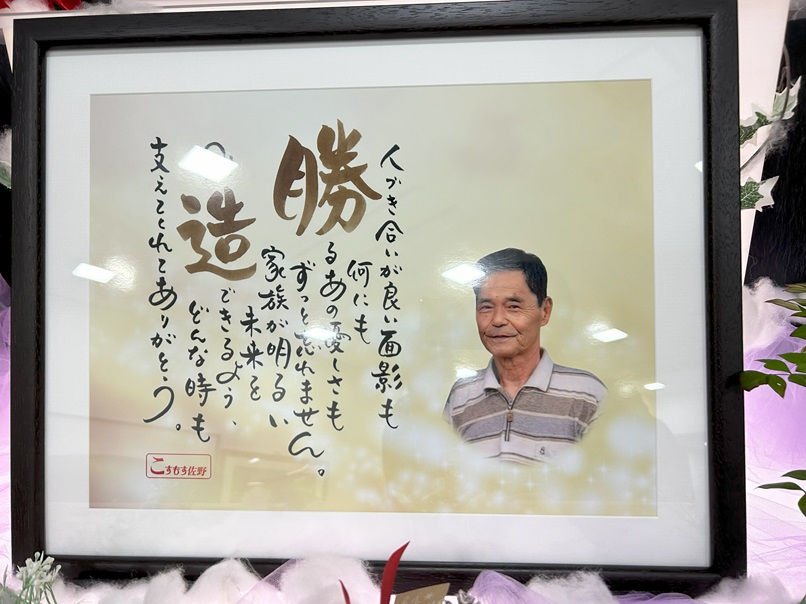 人づき合いが良い面影も
何にも
勝るあの優しさも
ずっと忘れません。
家族が明るい
未来を
造できるよう、
どんな時も
支えてくれてありがとう。
こすもす佐野